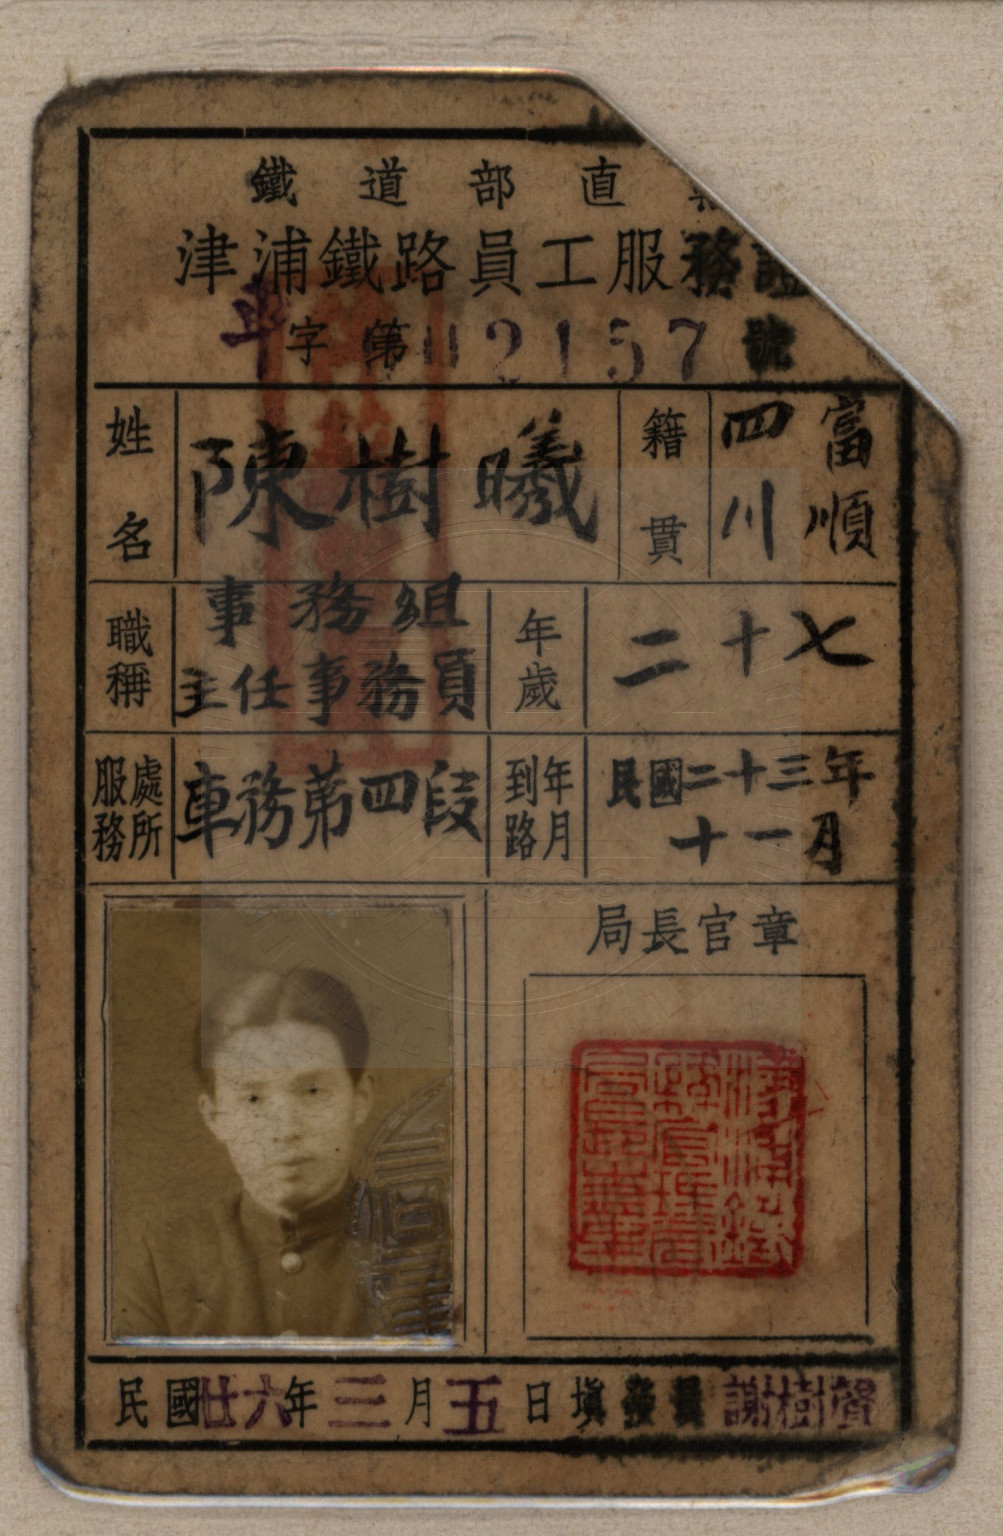 鐵道部直
津浦鐵路員工服務證
車字第02157號
姓名 陳樹曦
籍貫 四川富順
職稱 事務組
主任事務員
年歲 二十七
服務處所 車務第四段
到路年月 民國二十三年
十一月
局長官章
民國廿六年三月五日填發員謝樹聲